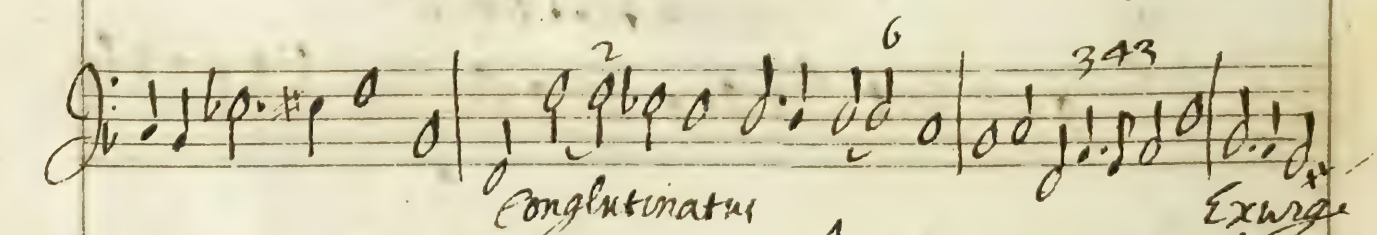 2 6 343
Conglutinatus Exurge